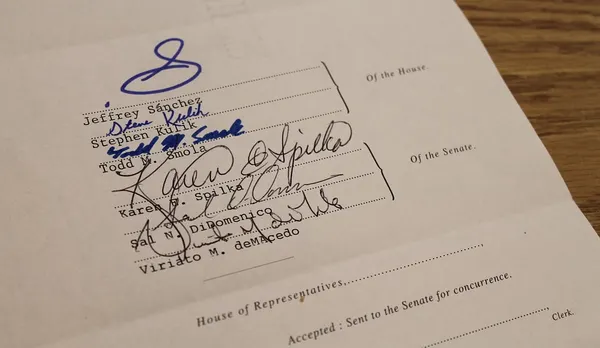 Of the House.
Jeffrey Sánchez
Steve Kulik
Stephen Kulik
Todd M. Smola
Todd M. Smola
Karen E Spilka
Of the Senate.
Karen E. Spilka
Sal N. DiDomenico
Viriato M. deMAcedo
House of Representatives,
Accepted : Sent to the Senate for concurrence.
Clerk.